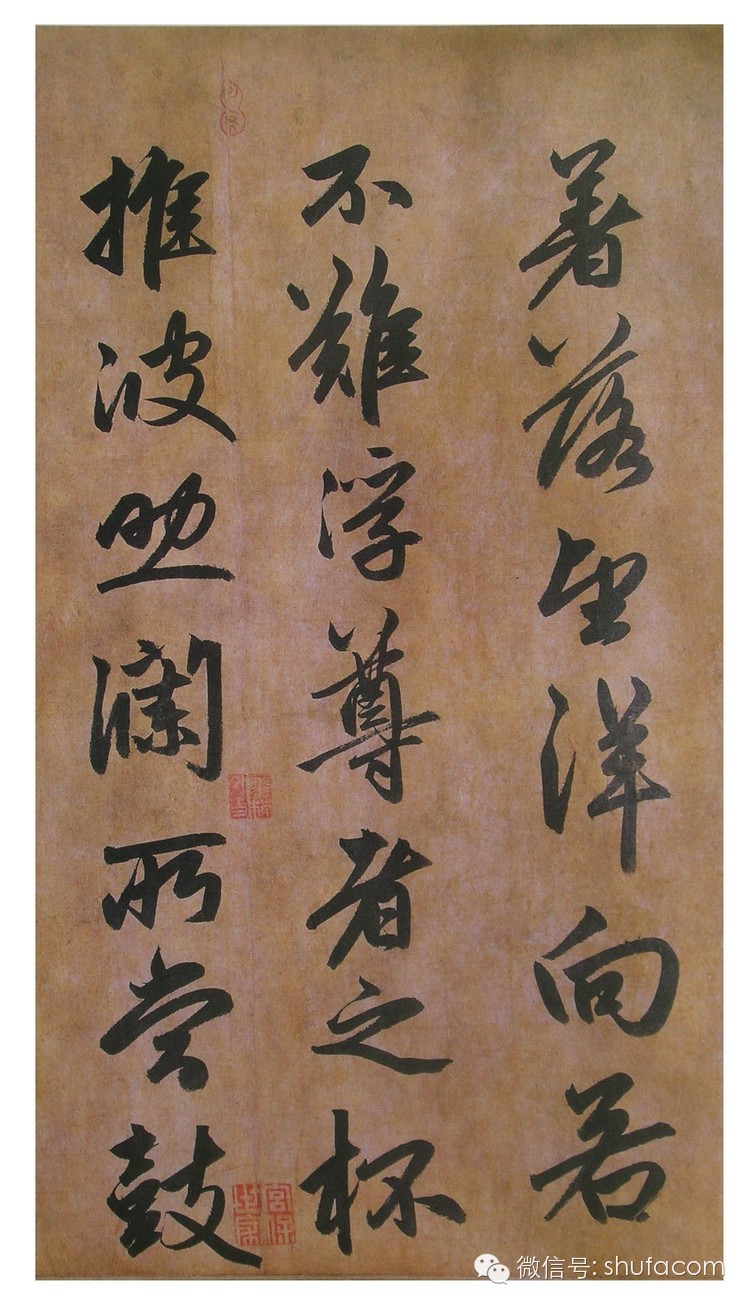 著落望洋向若
不難浮尊者之杯
推波助瀾所당鼓
微信号: shufacom